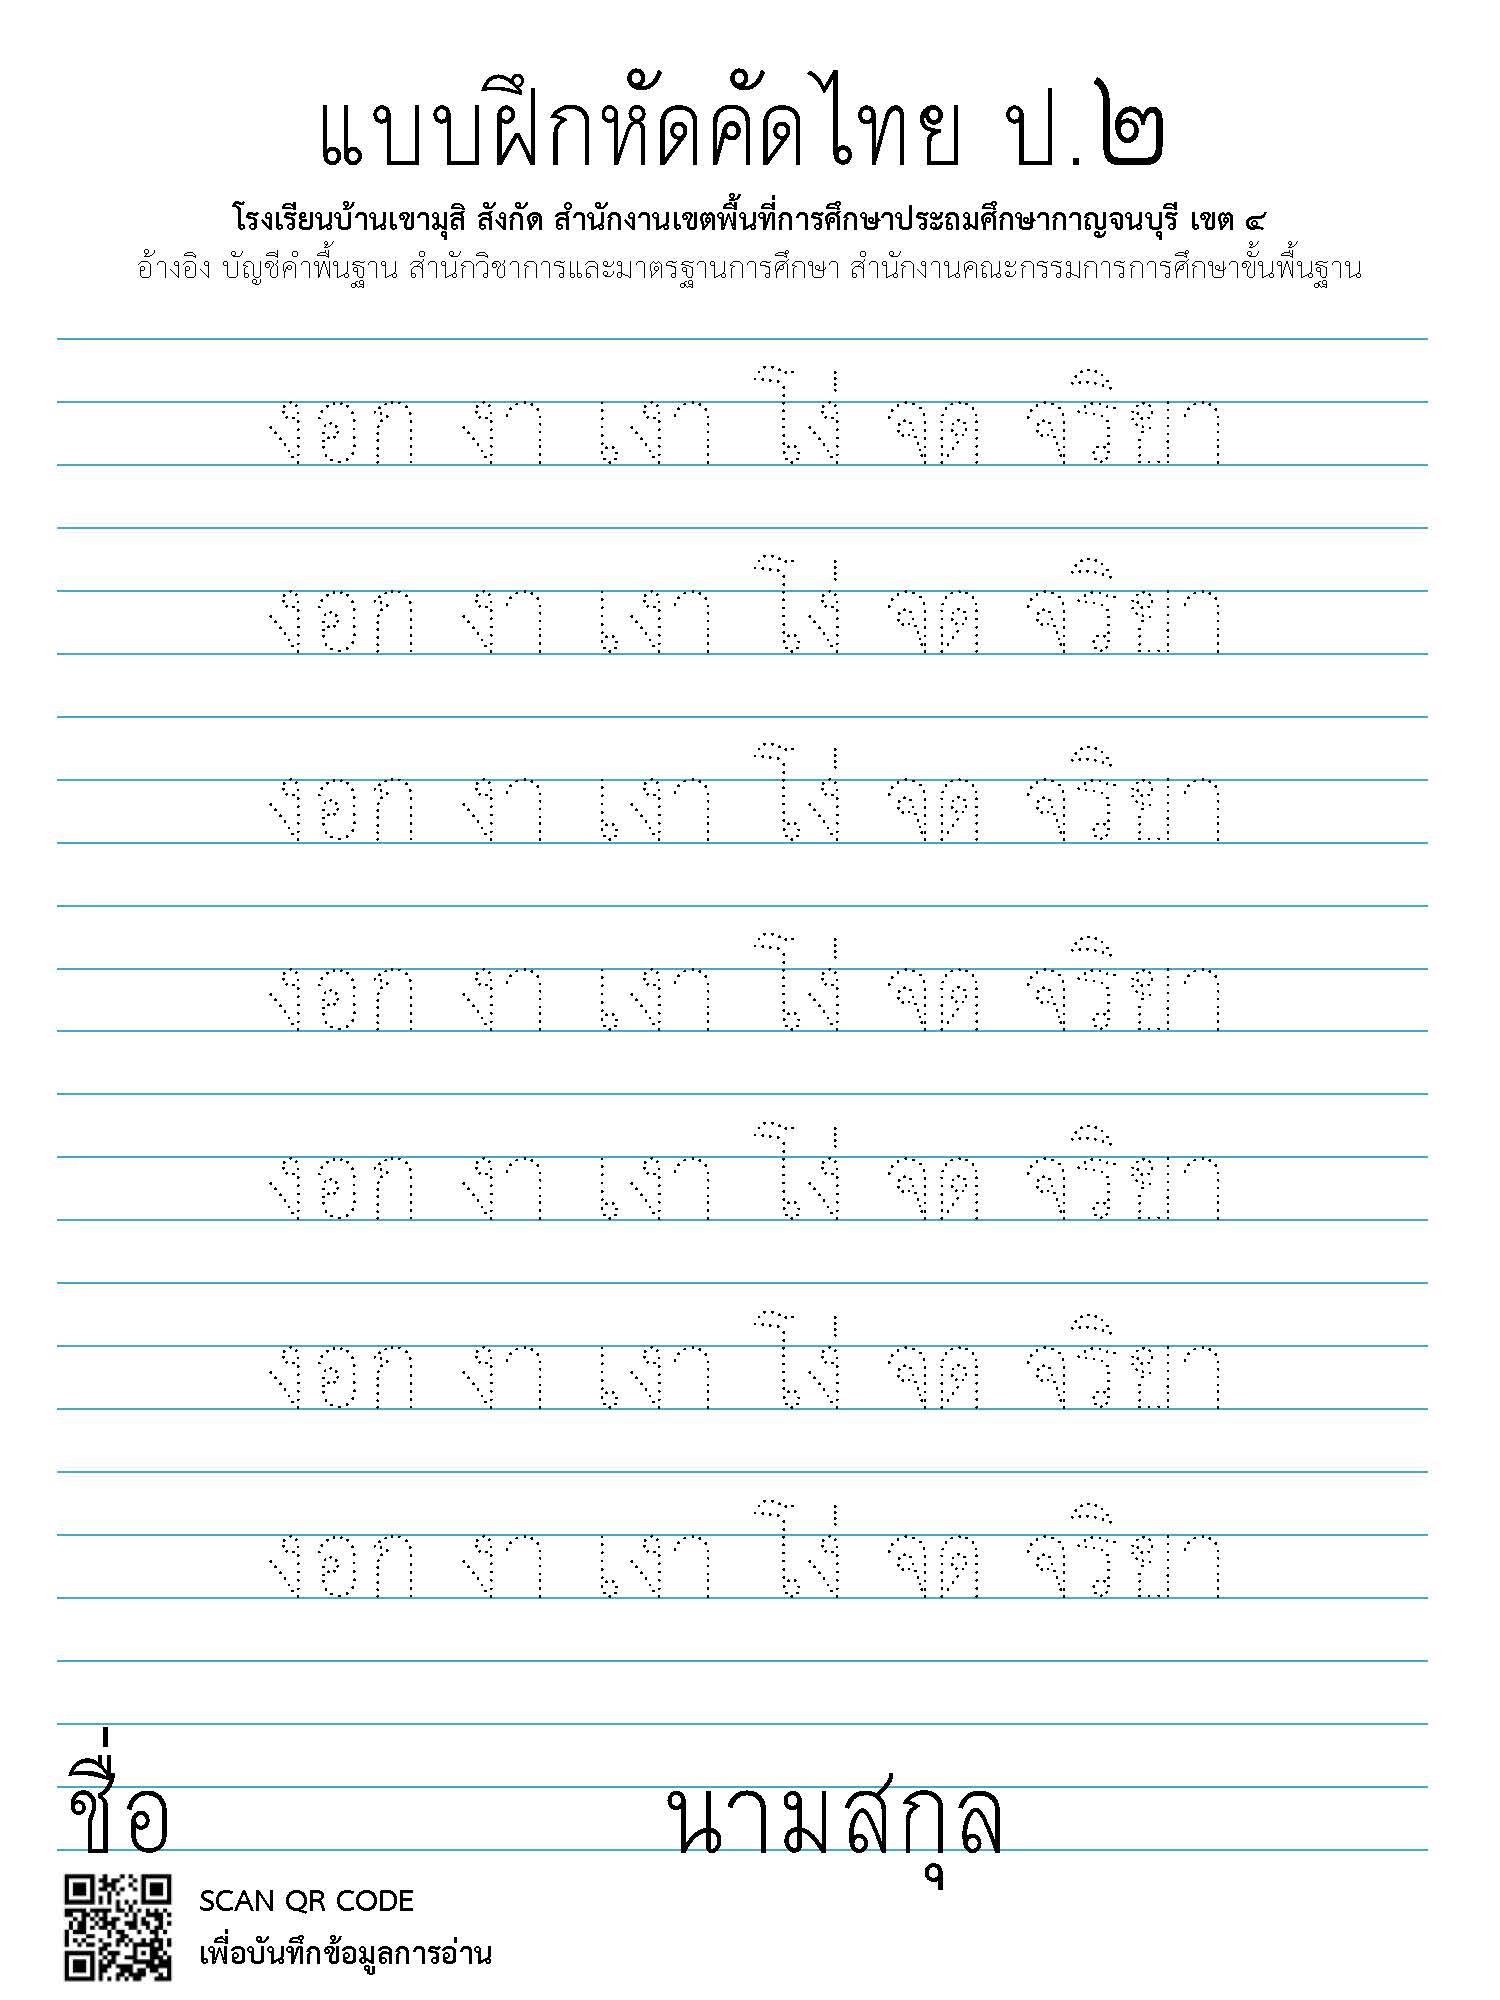 แบบฝึกหัดคัดไทย ป.๒
โรงเรียนบ้านเขามุสิ สังกัด สำนักงานเขตพื้นที่การศึกษาประถมศึกษากาญจนบุรี เขต ๔
อ้างอิง บัญชีคำพื้นฐาน สำนักวิชาการและมาตรฐานการศึกษา สำนักงานคณะกรรมการการศึกษาขั้นพื้นฐาน
งอก งา เงา โง่ จด จริยา
งอก งา เงา โง่ จด จริยา
งอก งา เงา โง่ จด จริยา
งอก งา เงา โง่ จด จริยา
งอก งา เงา โง่ จด จริยา
งอก งา เงา โง่ จด จริยา
งอก งา เงา โง่ จด จริยา
ชื่อ นามสกุล
SCAN QR CODE
เพื่อบันทึกข้อมูลการอ่าน